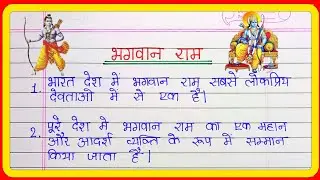 भगवान राम
1. भारत देश में भगवान राम सबसे लोकप्रिय
देवताओं में से एक है।
2. पूरे देश में भगवान राम का एक महान
और आदर्श व्यक्ति के रूप में सम्मान
किया जाता है।